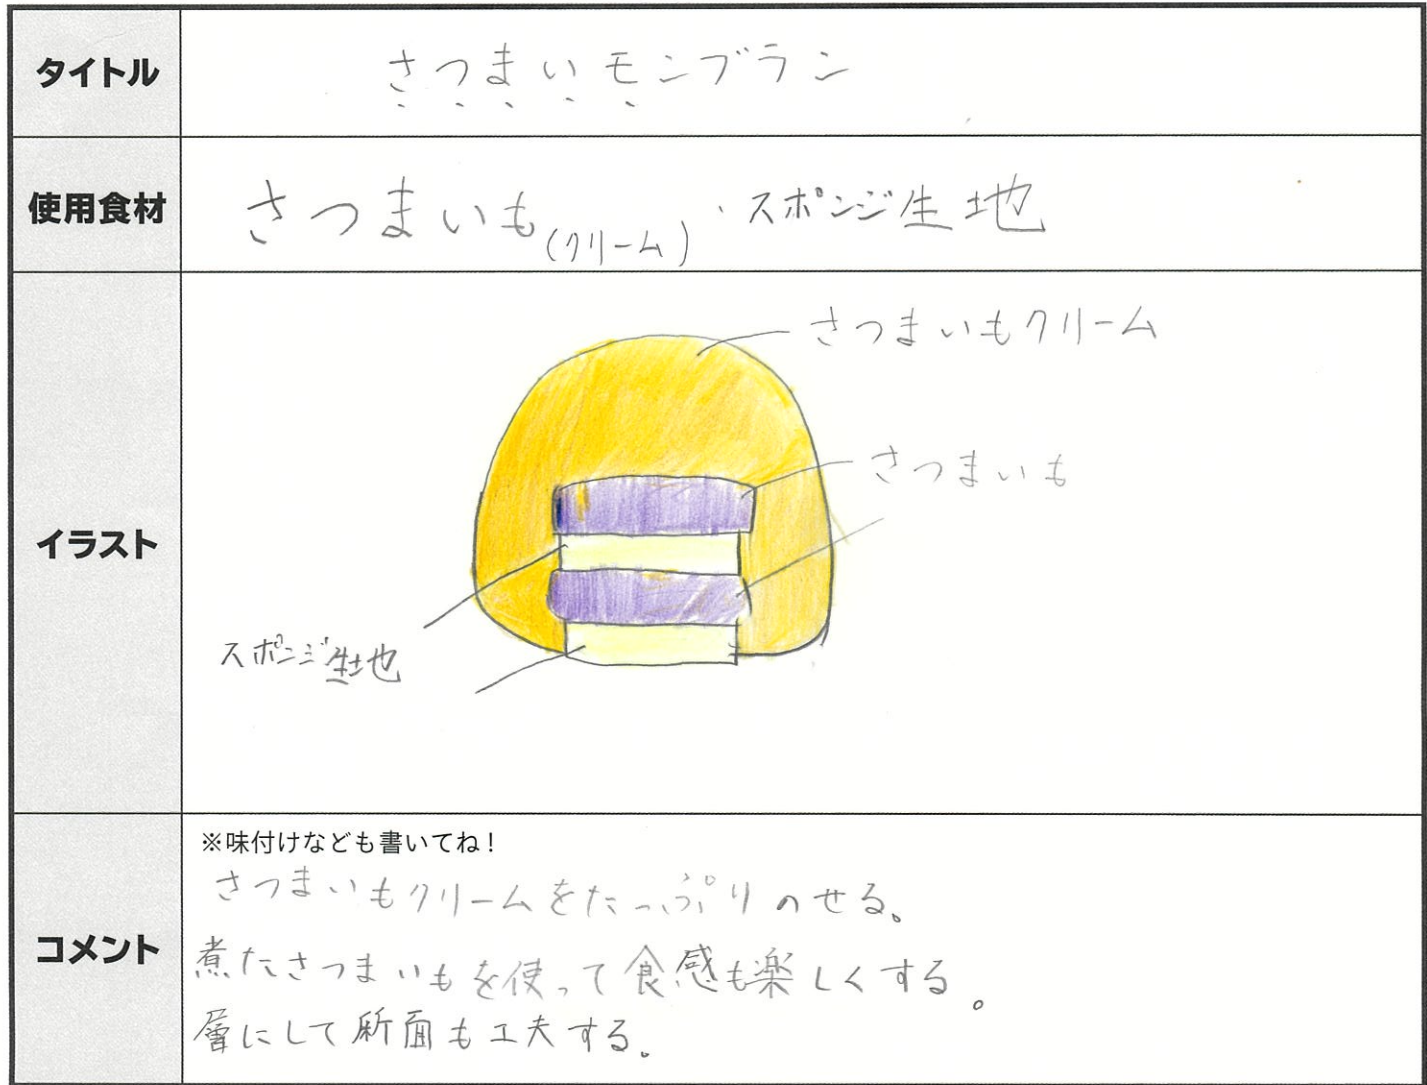 タイトル
さつまいモンブラン
使用食材
さつまいも(クリーム)、スポンジ生地
イラスト
さつまいもクリーム
さつまいも
スポンジ生地
コメント
※味付けなども書いてね!
さつまいもクリームをたっぷりのせる。
煮たさつまいもを使って食感も楽しくする。
層にして断面も工夫する。